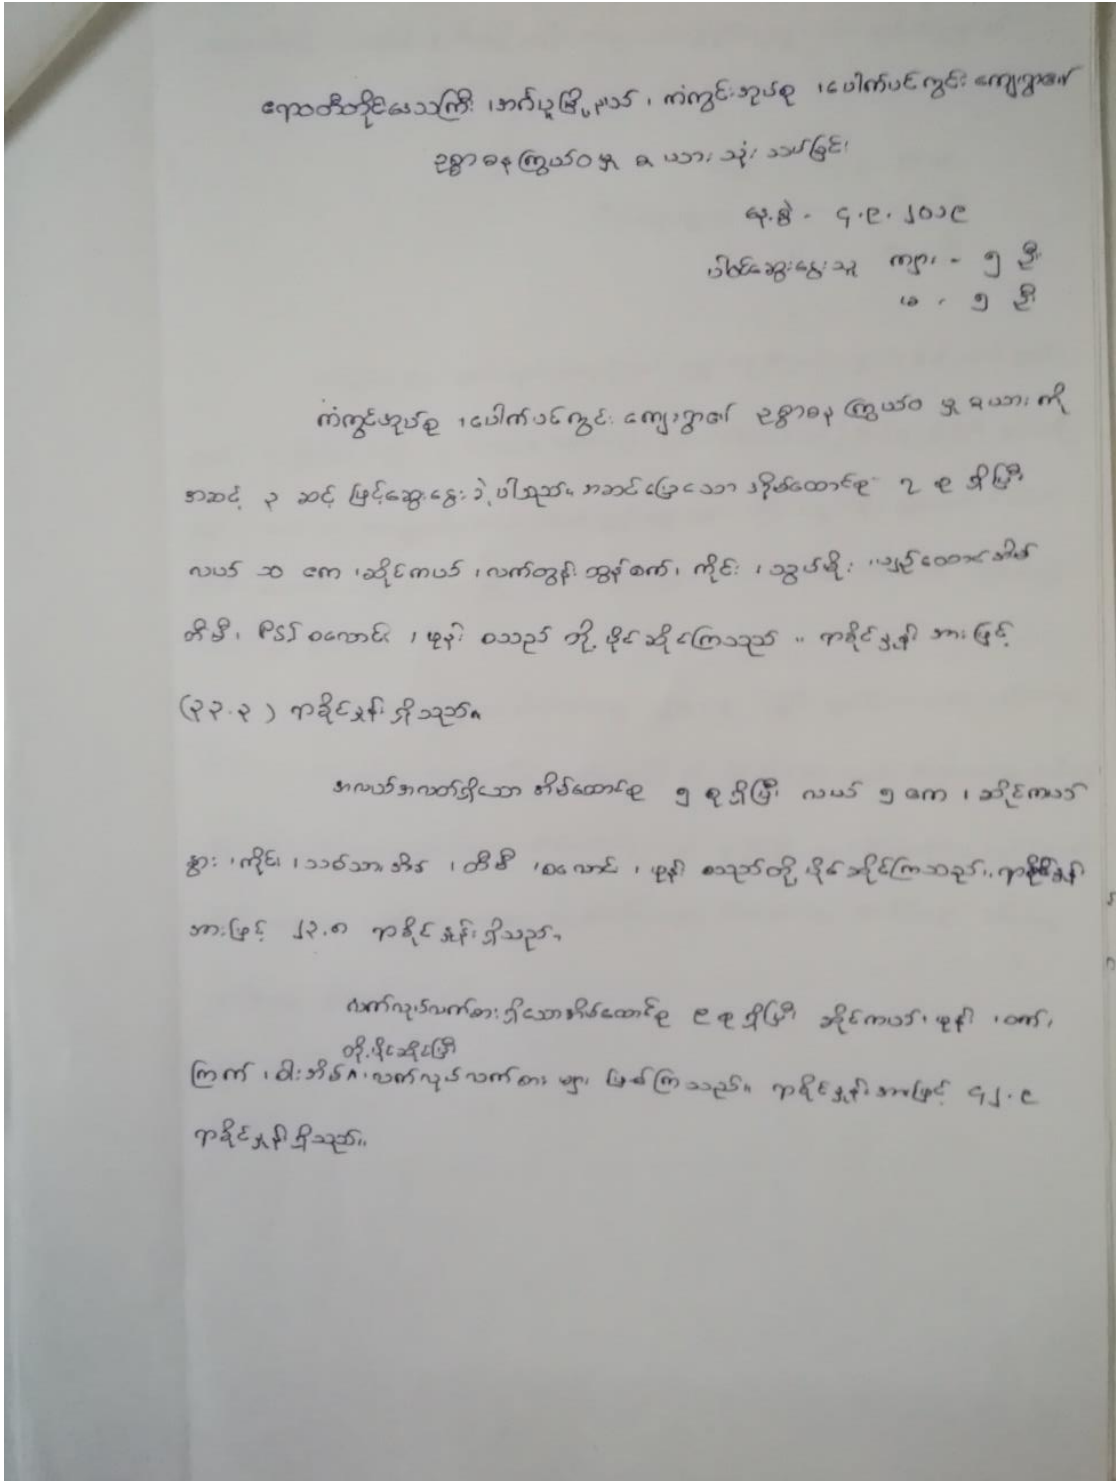 ဧရာဝတီတိုင်းဒေသကြီး ၊ အင်္ဂပူမြို့နယ် ၊ ကံကွင်းအုပ်စု ၊ ပေါက်ပင်ကွင်း ကျေးရွာ၏
ဥစ္စာဓနကြွယ်ဝမှု ဇယား သုံးသပ်ခြင်း
နေ့စွဲ - ၄.၉.၂၀၁၉
ပါဝင်ဆွေးနွေးသူ ကျား - ၅ ဦး
မ - ၅ ဦး
ကံကွင်းအုပ်စု ၊ ပေါက်ပင်ကွင်း ကျေးရွာ၏ ဥစ္စာဓန ကြွယ်ဝ မှု ဇယား ကို
အဆင့် ၃ ဆင့် ဖြင့်ဆွေးနွေး ခဲ့ ပါသည်။ အဆင်ပြေသော အိမ်ထောင်စု ၇ စု ရှိပြီး
လယ် ၁၀ ဧက ၊ ဆိုင်ကယ် ၊ လက်တွန်း ထွန်စက် ၊ ကိုင်း ၊ သွပ်မိုး ၊ ပျဉ်ထောင်အိမ်
တီဗီ ၊ PSI စလောင်း ၊ ဖုန်း စသည် တို့ ပိုင်ဆိုင်ကြသည် ။ ရာခိုင်နှုန်း အားဖြင့်
(၃၃.၃) ရာခိုင်နှုန်း ရှိသည်။
အလယ်အလတ်ရှိသော အိမ်ထောင်စု ၅ စု ရှိပြီး လယ် ၅ ဧက ၊ ဆိုင်ကယ်
နွား ၊ ကိုင်း ၊ သစ်သား အိမ် ၊ တီဗီ ၊ စလောင်း ၊ ဖုန်း စသည်တို့ ပိုင်ဆိုင်ကြသည်။ ရာခိုင်နှုန်း
အားဖြင့် ၂၃.၈ ရာခိုင်နှုန်း ရှိသည်။
လက်လုပ်လက်စား ရှိသောအိမ်ထောင်စု ၉ စု ရှိပြီး ဆိုင်ကယ် ၊ ဖုန်း ၊ ဝက် ၊
တို့ ပိုင်ဆိုင်ပြီး
ကြက် ၊ ဝါးအိမ် ၊ လက်လုပ်လက်စား များ ဖြစ်ကြသည်။ ရာခိုင်နှုန်းအားဖြင့် ၄၂.၉
ရာခိုင်နှုန်း ရှိသည်။